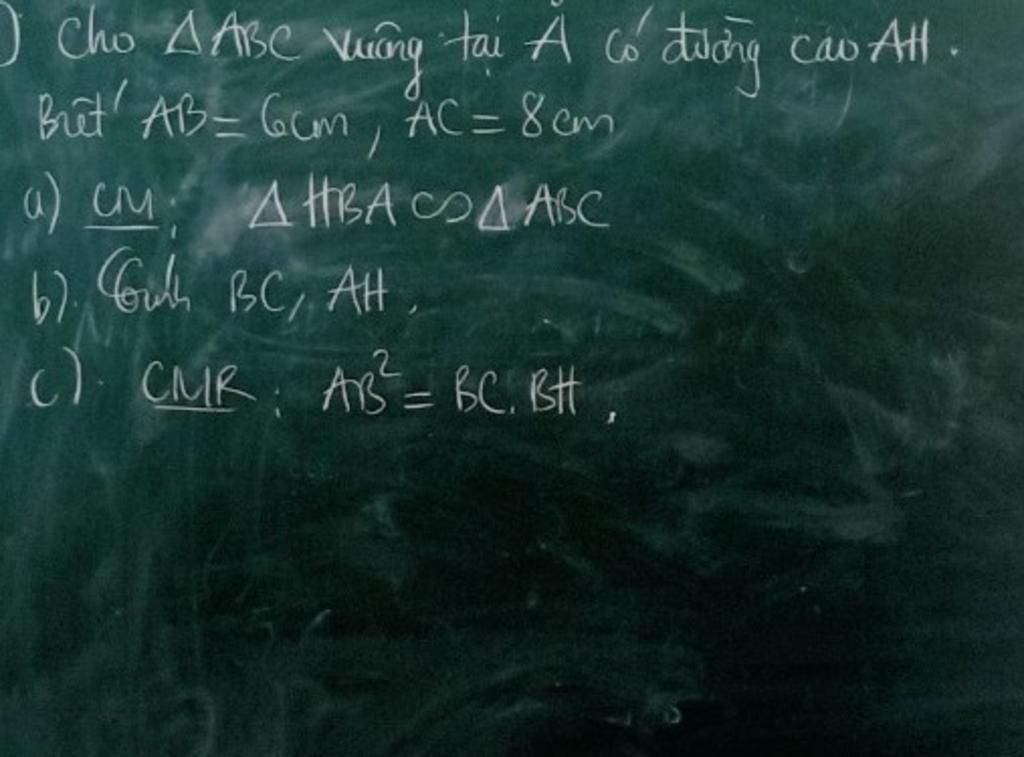 ) Cho ΔABC vuông tại A có đường cao AH.
Biết AB = 6cm, AC = 8cm
a) CM: ΔHBA ∽ ΔABC
b). Tính BC, AH.
c). CMR: AB² = BC.BH.